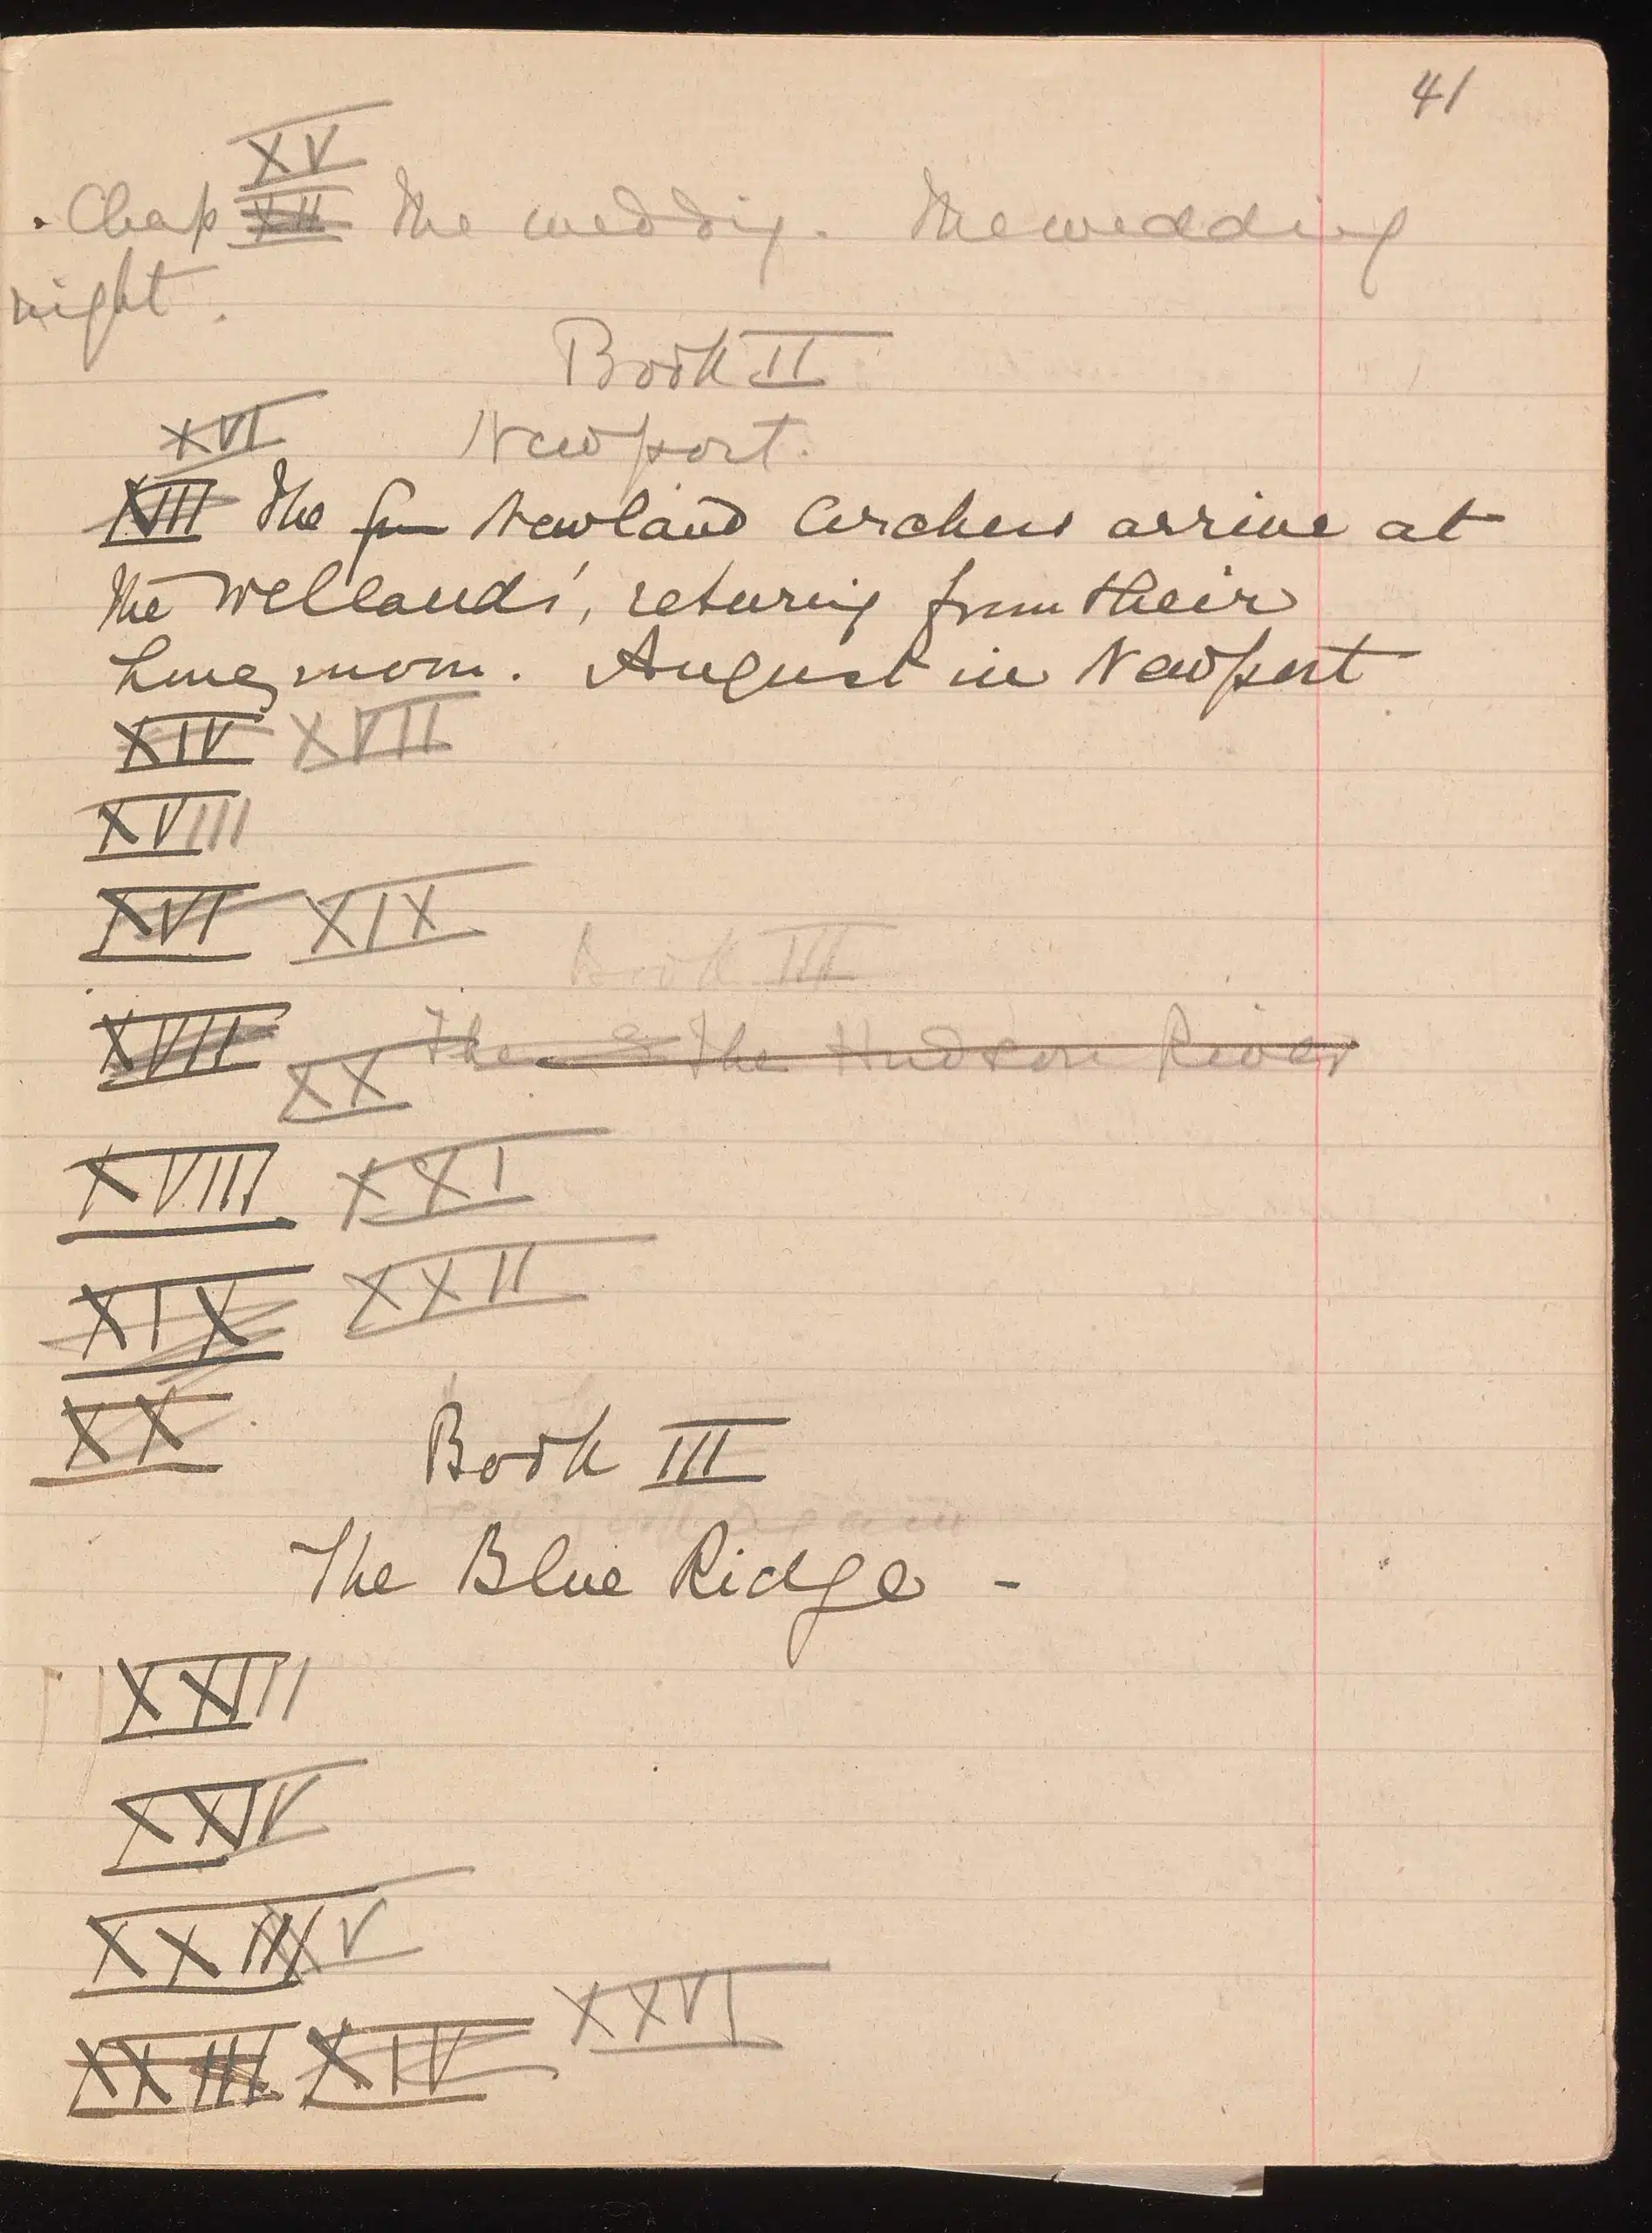 41
XV
Chap XII The wedding. The wedding
night.
Book II
XVI Newport.
XIII The Newland Archers arrive at
the Wellands', returing from their
honeymoon. August in Newport
XIV XVII
XVIII
XVI XIX
Book III
XVII The The Hudson River
XX
XVIII XXI
XIX XXII
XX Book III
again
The Blue Ridge -
XXIII
XXIV
XXIII V
XXIII XIV XXVI